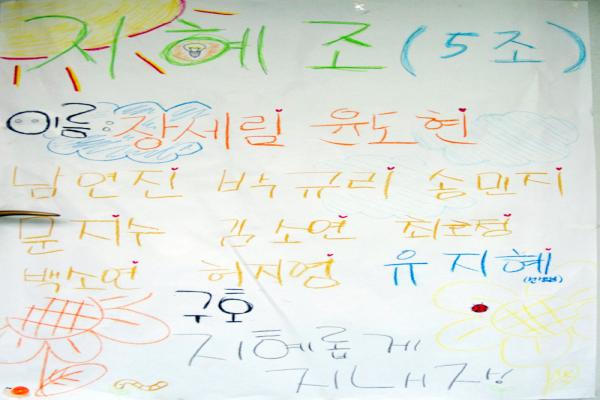 지혜 조 (5조)
이름: 장세림 윤도현
남연진 박규리 송민지
문지수 김소연
백소연 허지영 유지혜
구호
지혜롭게
지내자!